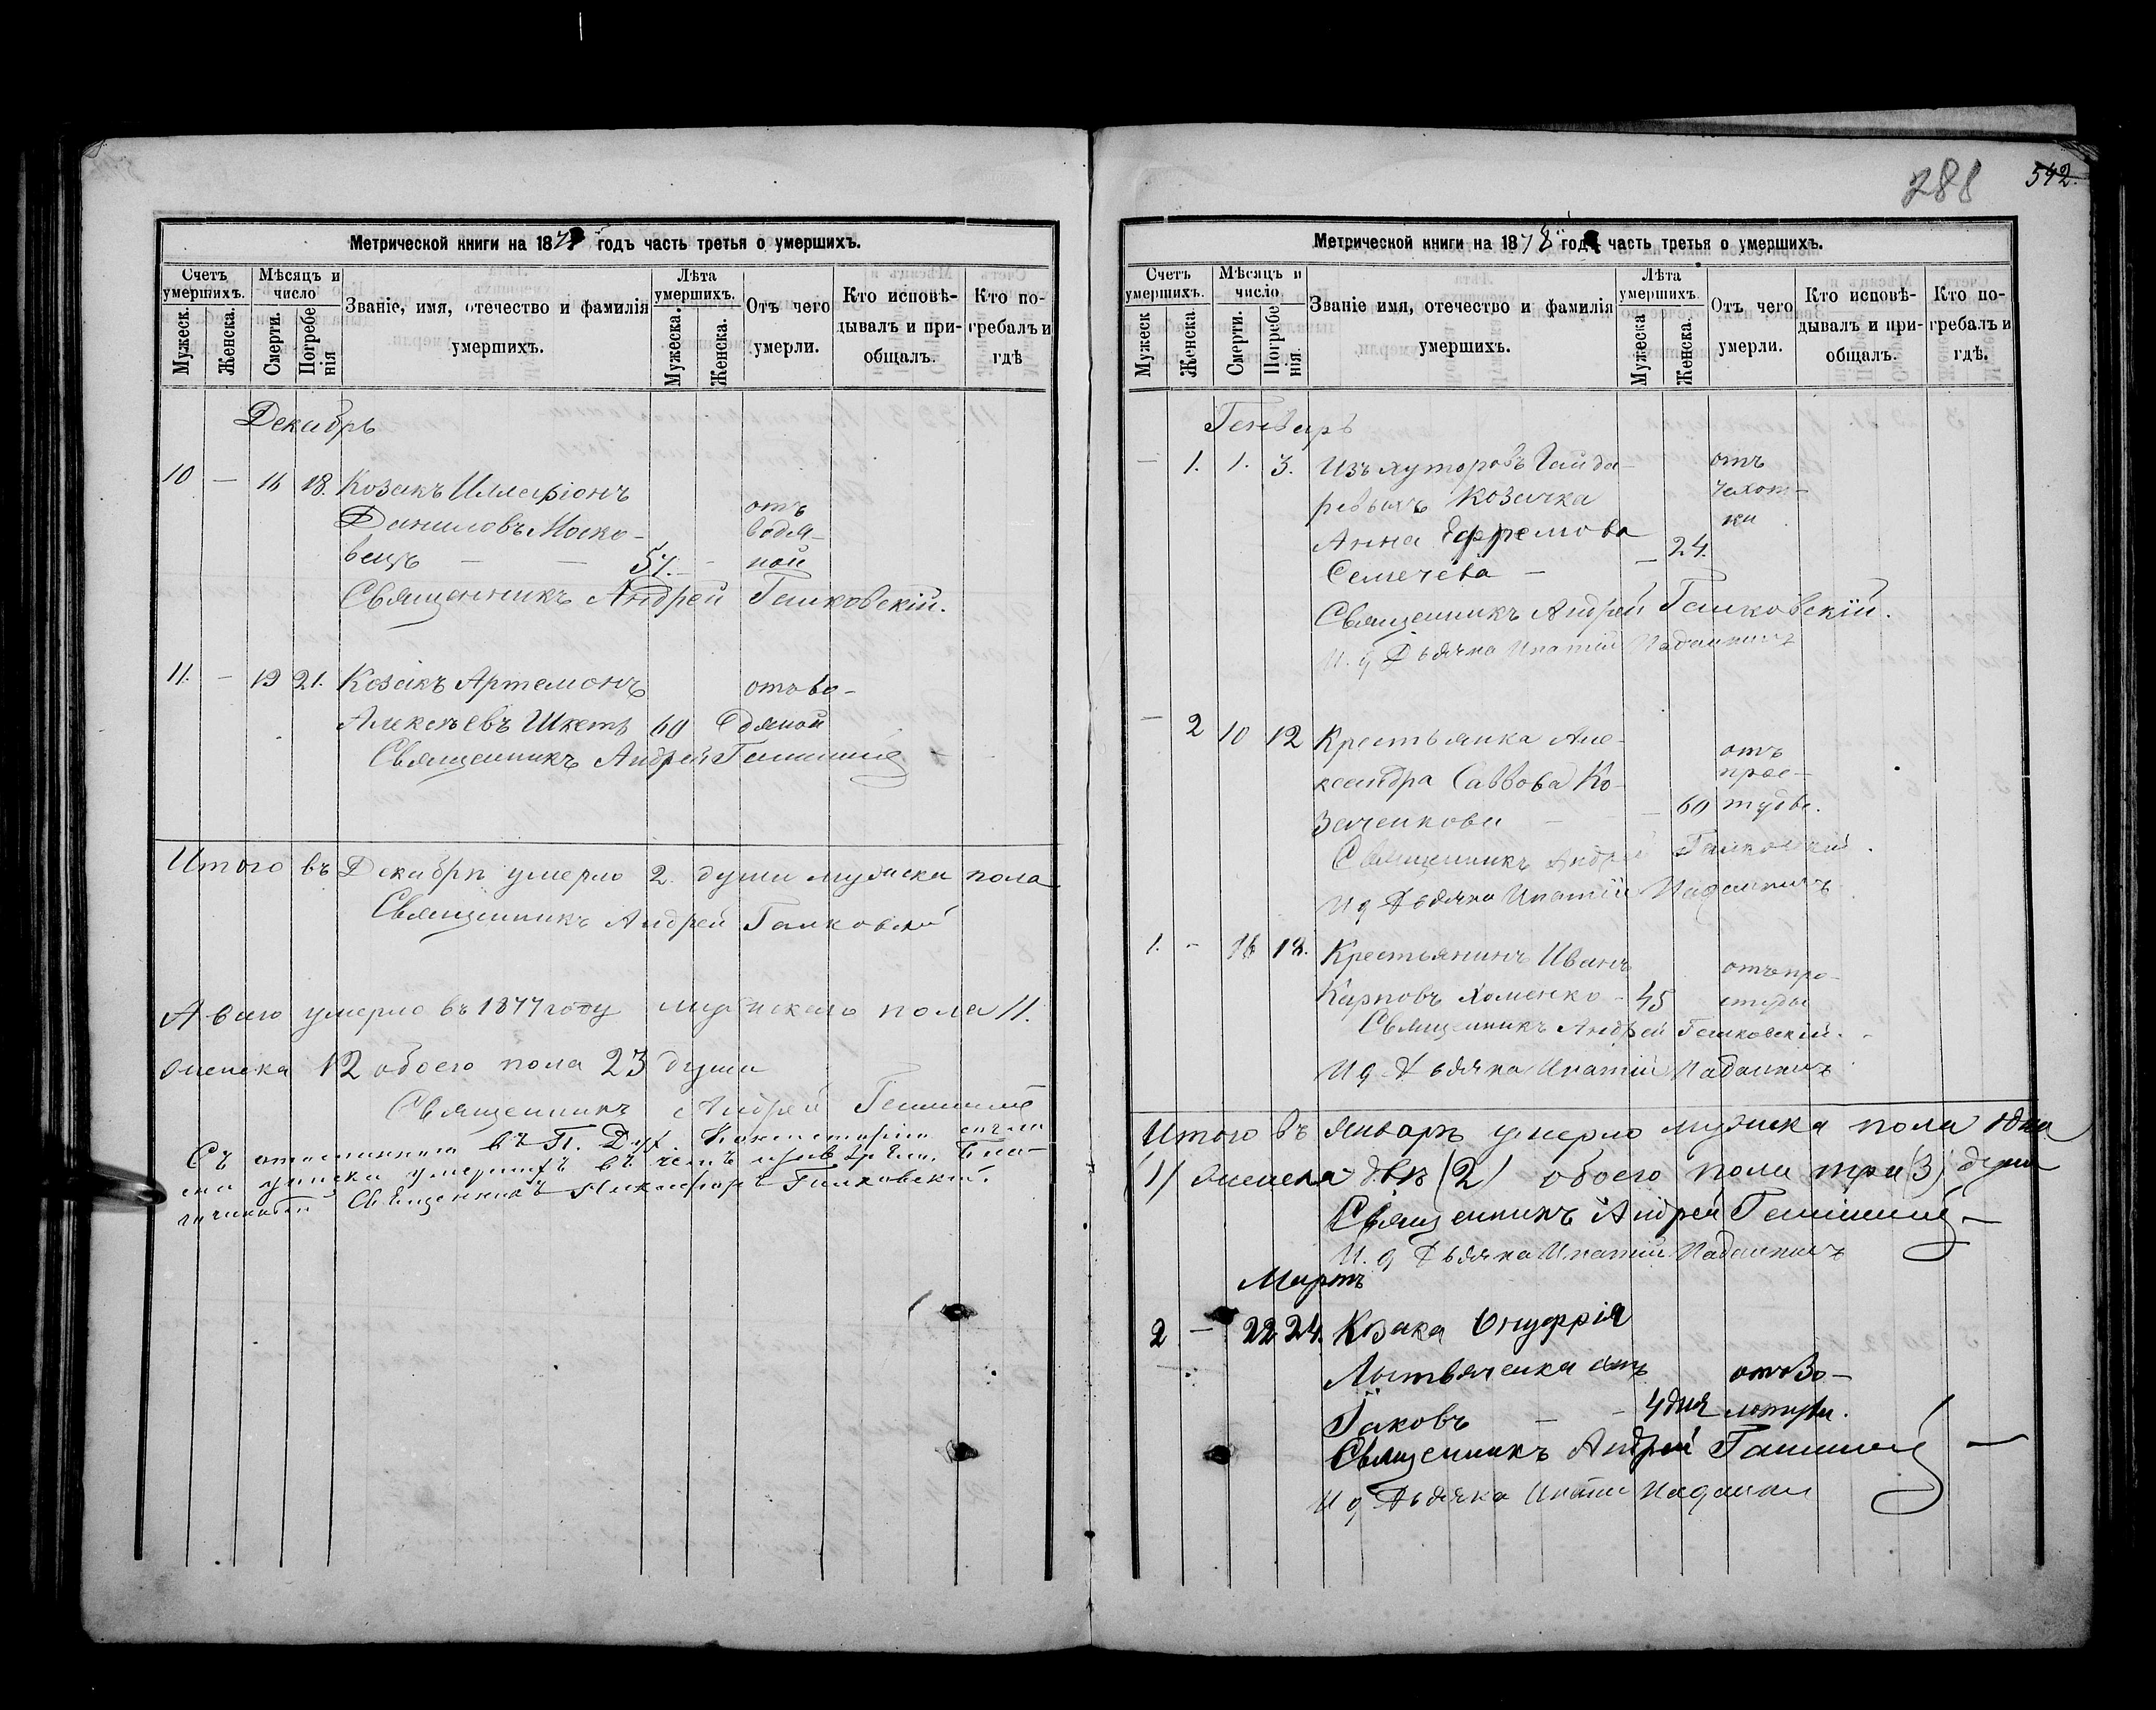 288 542.
Метрической книги на 1877 годъ часть третья о умершихъ.
Счетъ умершихъ.
Мужеск.
Женска.
Мѣсяцъ и число
Смерти.
Погребенія
Званіе, имя, отечество и фамилія умершихъ.
Лѣта умершихъ.
Мужеска.
Женска.
Отъ чего умерли.
Кто исповѣдывалъ и приобщалъ.
Кто погребалъ и гдѣ
Декабрь
10 — 16 18. Козакъ Илларіонъ
Даниловъ Моско- отъ
вецъ — — 57. — водя-
ной
Священникъ Андрей Галковскій.
11. — 19 21. Козакъ Артемонъ отъ во-
Алексѣевъ Шкетъ 60 дяной
Священникъ Андрей
Итого въ Декабрѣ умерло 2. души мужеска пола
Священникъ Андрей Галковскій
А всего умерло въ 1877 году мужескаго пола 11.
женска 12 обоего пола 23 души
Священникъ Андрей
Съ въ Дух.
умершихъ въ чемъ Бла-
гочинный Священникъ Галковскій.
Метрической книги на 1878 годъ часть третья о умершихъ.
Счетъ умершихъ.
Мужеск
Женска.
Мѣсяцъ и число
Смерти.
Погребенія.
Званіе имя, отечество и фамилія умершихъ.
Лѣта умершихъ.
Мужеска
Женска.
Отъ чего умерли.
Кто исповѣдывалъ и приобщалъ.
Кто погребалъ и гдѣ.
Генварь
— 1. 1. 3. Изъ хуторовъ Гайда- отъ
ревыхъ козачка чахот-
Анна Ефремова — 24. ки
Семечева —
Священникъ Андрей Галковскій.
И. д Дьячка Ипатій
— 2 10 12 Крестьянка Але- отъ
ксандра Саввова Ко- прос-
заченкова — — 60 туды.
Священникъ Андрей Галковскій.
И д Дьячка Ипатій
1. - 16 18. Крестьянинъ Иванъ отъ про-
Карповъ Хоменко - 45 студы
Священникъ Андрей Галковскій.
И д Дьячка Ипатій
Итого въ Январѣ умерло мужеска пола одна
(1) женска двѣ (2) обоего пола три (3) души
Священникъ Андрей
И. д Дьячка Ипатій
Мартъ
2 — 22 24. Козака Онуфрія
Литвиненка сынъ отъ зо-
Іаковъ — — 4 дня лотухи.
Священникъ Андрей
И д Дьячка